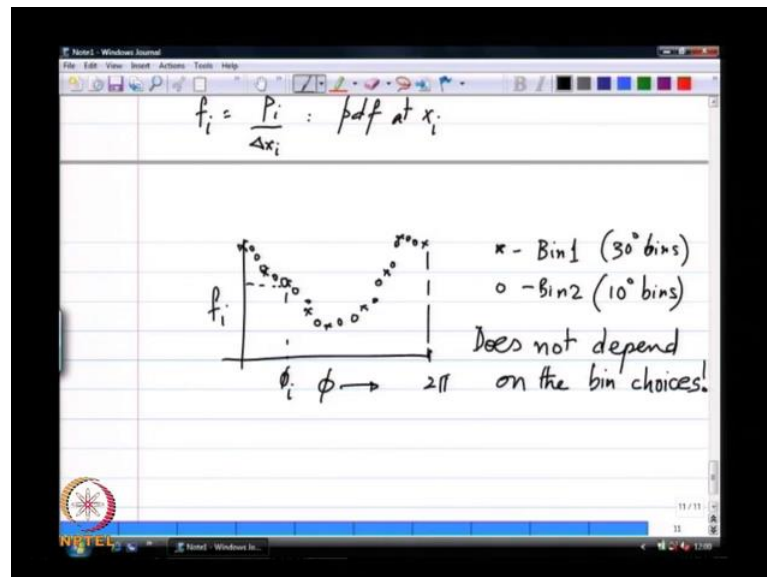 Note1 - Windows Journal
File Edit View Insert Actions Tools Help
B I
f_i = P_i / Δx_i : pdf at x_i
x - Bin1 (30° bins)
o - Bin2 (10° bins)
f_i
Does not depend
on the bin choices!
ϕ_i ϕ → 2π
11 / 11
11
NPTEL
Note1 - Windows Jo...
12:00